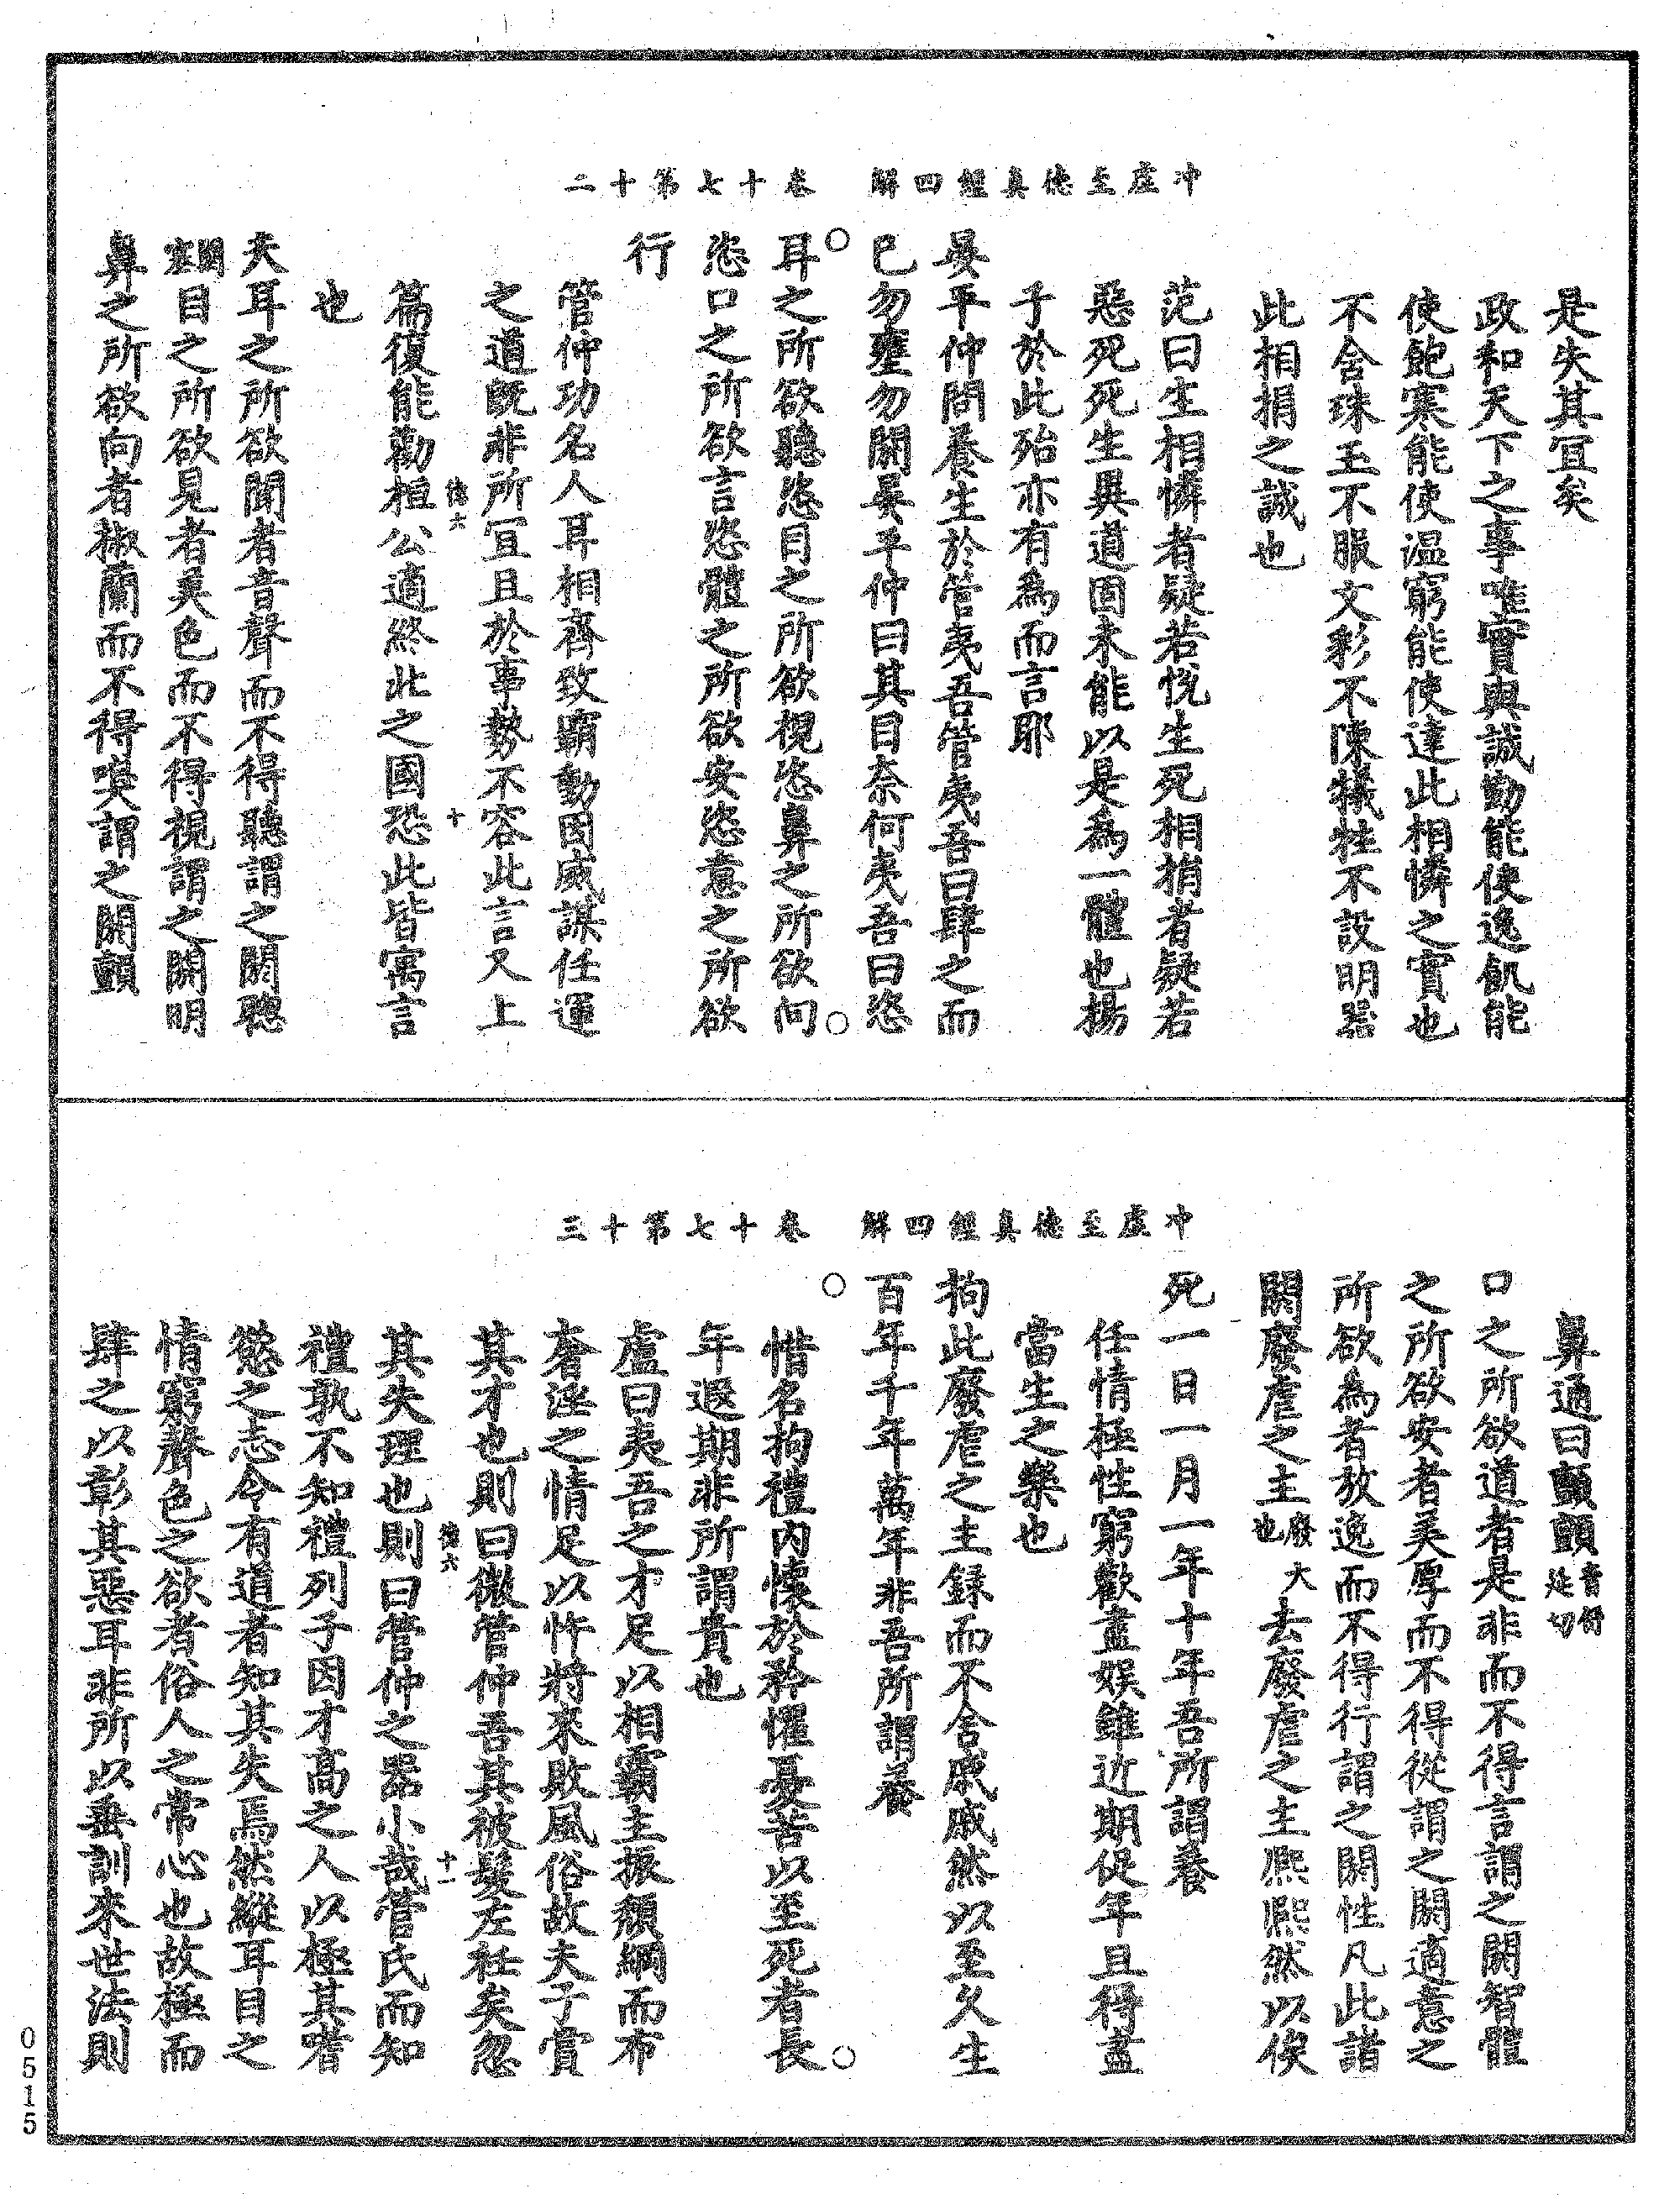 冲虛至德真經四解　卷十七第十二
是失其宜矣
政和天下之事唯實與誠動能使逸飢能
使飽寒能使温窮能使達此相憐之實也
不含珠玉不服文彩不陳犧牲不設明器
此相捐之誠也
范曰生相憐者疑若恱生死相捐者疑若
惡死死生異道固未能以是為一體也揚
子於此殆亦有為而言耶
晏平仲問養生於管夷吾管夷吾曰肆之而
已勿壅勿閼晏平仲曰其目奈何夷吾曰恣
耳之所欲聽恣目之所欲視恣鼻之所欲向
恣口之所欲言恣體之所欲安恣意之所欲
行
管仲功名人耳相齊致霸動因威謀任運
之道既非所宜且於事勢不容此言又上
篇復能勸桓公適終北之國恐此皆寓言
也
夫耳之所欲聞者音聲而不得聽謂之閼聰
閼塞目之所欲見者美色而不得視謂之閼明
鼻之所欲向者椒蘭而不得嗅謂之閼顫
冲虛至德真經四解　卷十七第十三
鼻通曰顫顫音舒延切
口之所欲道者是非而不得言謂之閼智體
之所欲安者美厚而不得從謂之閼適意之
所欲為者放逸而不得行謂之閼性凡此諸
閼廢虐之主廢大也去廢虐之主熈熈然以俟
死一日一月一年十年吾所謂養
任情極性窮歡盡娛雖近期促年且得盡
當生之樂也
拘此廢虐之主録而不舍戚戚然以至久生
百年千年萬年非吾所謂養
惜名拘禮內懷於矜懼憂苦以至死者長
年遐期非所謂貴也
盧曰夷吾之才足以相霸主振頹綱而布
奢淫之情足以忤將來敗風俗故夫子賞
其才也則曰微管仲吾其被髮左衽矣忽
其失理也則曰管仲之器小哉管氏而知
禮孰不知禮列子因才高之人以極其嗜
慾之志令有道者知其失焉然縱耳目之
情窮聲色之欲者俗人之常心也故極而
肆之以彰其惡耳非所以垂訓來世法則
0515